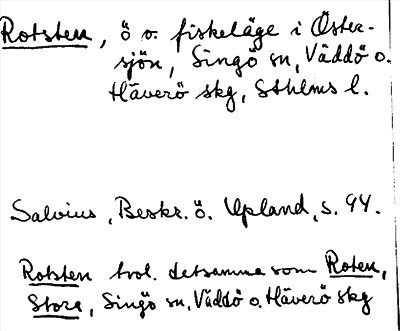 Rotsten, ö o. fiskeläge i Öster-
sjön, Singö sn, Väddö o.
Häverö skg, Sthlms l.
Salvius, Beskr. ö. Upland, s. 94.
Rotsten trol. detsamma som Roten,
Stora, Singö sn, Väddö o. Häverö skg